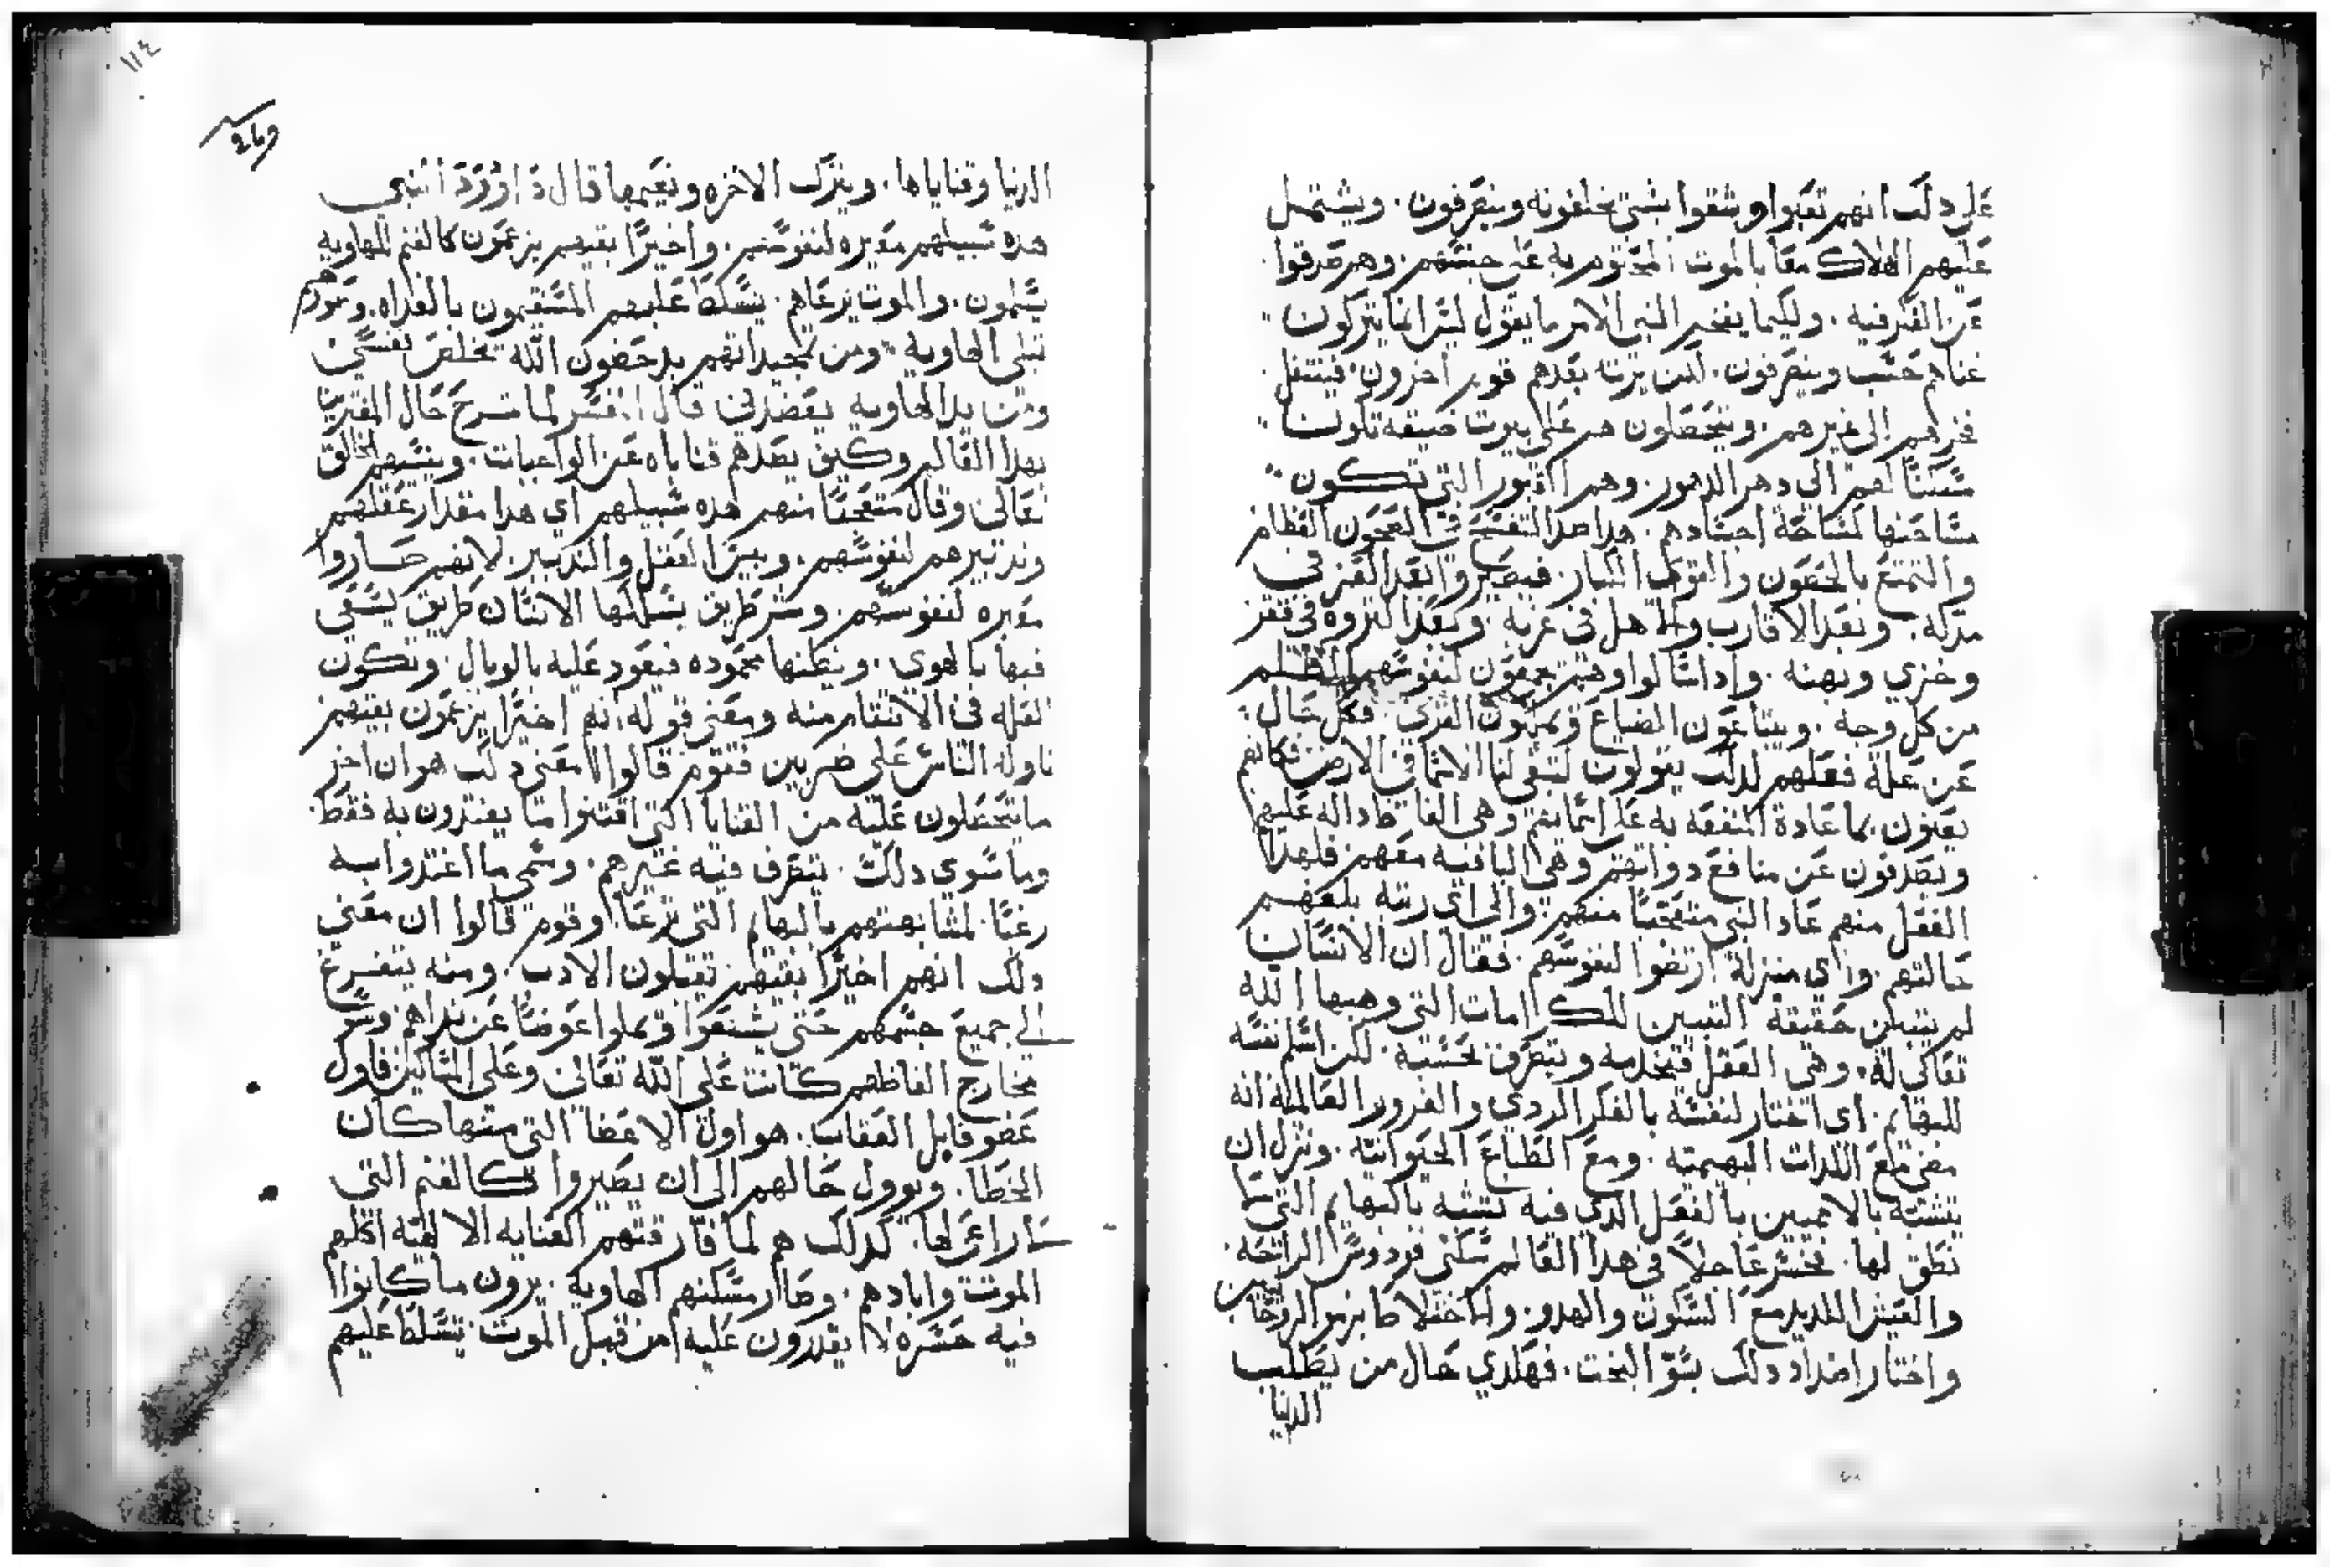 علي دلك انهم تعبوا وشقوا بشي يخلفونه وينصرفون . ويشتمل
عليهم الهلاك معا بالموت المختوم به علي جنسهم . وهم صدقوا
عن الفكر فيه . ولكيما يفخم النبي الامر ما يقول ليس انما يتركون
غناهم حسب وينصرفون . لكن يرته بعدهم قوم اخرون . فينتقل
فخرهم الي غيرهم . ويتحصلون هم علي بيوت ضيقه تكون
مسكنا لهم الي دهر الدهور . وهم القبور التي تكون
مساحتها لمساحة اجسادهم . هدا ضد التفسح في الصحون العظام
والتمتع بالحصون والقري الكبار . فيصيروا بعد العز في
مدله . وبعد الاقارب والاهل في غربه . وبعد التروه في فقر
وخزي ومهنه . وادا سالوا وهم يجمعون لنفوسهم بالظلم
من كل وجه . ويبتاعون الضياع ويملكون القري . فكل حال
عن علة فعلهم لدلك يقولون لتبقي لنا الاسما في الارض فكانهم
يعنون بما عادة المنفعه به علي اسمايهم وهي الفاظ داله عليهم
ويصدفون عن منافع دواتهم وهي الباقيه معهم فلهدا
الفعل منهم عاد النبي متعجبا منهم . والي اي رتبه بلغهم
حالتهم . واي منزلة ارتضوا لنفوسهم . فقال ان الانسان
لم يتبين حقيقة التبيين للكرامات التي وهبها الله
تعالي له . وهي العقل فيخدمه ويتصرف بحسبه . لكن اسلم نفسه
للبهايم . اي اختار لنفسه بالفكر الردي والغرور العالمية انه
مضي مع اللدات البهيميه . ومع الطباع الحيوانيه . وترك ان
يتشبه بالادميين بالفعل الدي فيه تشبه بالبهايم التي لا
نطق لها . بخسر عاجلا في هدا العالم سكني فردوس الراحه .
والعيش اللديد مع السكون والهدو . والاختلاط بزمر الروحانيين
واختار اضداد دلك بسو البخت . فهدي حال من يطلب
الدنيا
١١٤
الدنيا وقناياها . ويترك الاخره ونعيمها قال داوود النبي
هده سبيلهم معيره لنفوسهم . واخيرا بفيهم يزعمون كالغنم للهاويه
يسلمون . والموت يرعاهم . يسلط عليهم المستقيمون بالغداه . وعونهم
تبلي الهاويه . ومن مجيداتهم يدحضون الله تخلص نفسي
ومن يد الهاويه يعضدني قال المفسر لما شرح حال المغترين
بهدا العالم وكيف تصدهم قناياه عن الواجبات . وينسيهم الخالق
تعالي وقال متعجبا منهم هده سبيلهم اي هدا مقدار عقلهم
وتدبيرهم لنفوسهم . وبيس العقل والتدبير لانهم صاروا
معيره لنفوسهم . وشر طريق يسلكها الانسان طريق يسعي
فيها بالهوي . ويظنها محموده فيعود عليه بالوبال . وتكون
العله في الانتقام منه ومعني قوله انهم اخيرا يزعمون بفيهم
تاوله الناس علي ضربين فقوم قالوا معني دلك هو ان اخر
ما يتحصلون عليه من القنايا التي اقتنوا ما يغتدون به فقط
وما سوي دلك . يتصرف فيه غيرهم . وسمي ما اغتدوا به
رعيا . لمشابهتهم بالبهايم التي ترعا . وقوم قالوا ان معني
دلك انهم اخيرا بفيهم تقبلون الادب . ومنه يتفرع
الي جميع جسمهم حتي يشبعوا ويملوا عوضا عن بداهم وشر
مخارج الفاظهم كانت علي الله تعالي وعلي المساكين فاول
عضو قابل العقاب . هو اول الاعضا التي منها كان
الخطا . ويوول حالهم الي ان يصيروا كالغنم التي
لا راعي لها . كدلك هم لما فارقتهم العنايه الالهيه اكلهم
الموت وابادهم . وصار مسكنهم الهاوية . يرون ما كانوا
فيه حسره لا يقدرون عليه من قبل الموت . يتسلط عليهم